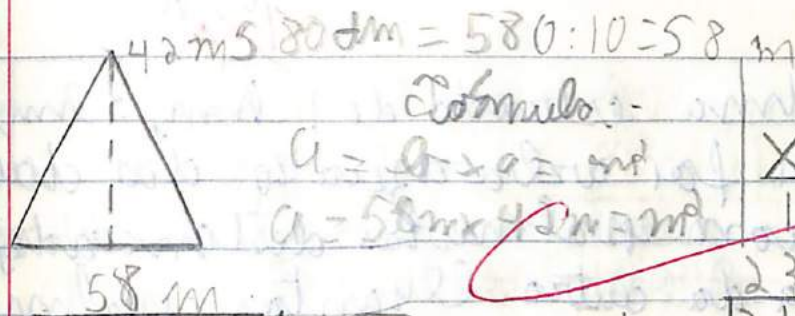 42m 580 dm = 580:10 = 58 m
Fórmula:-
a = b x a = m²
a = 58m x 42m = m²
58 m